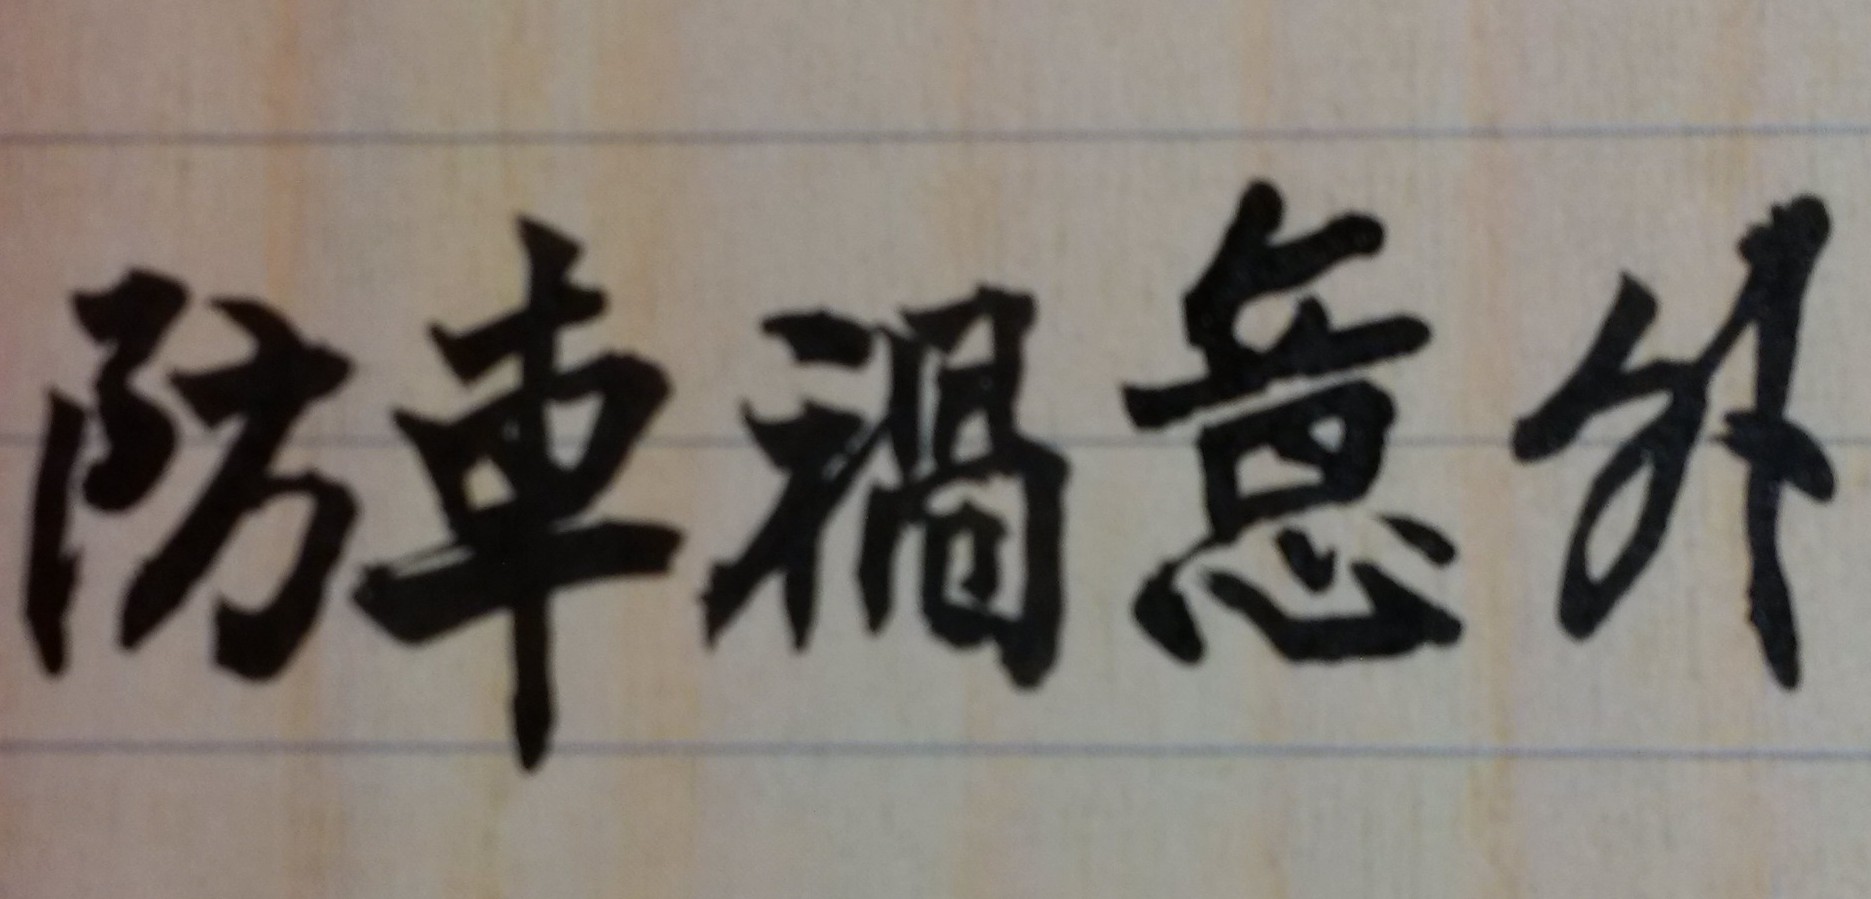 防車禍意外